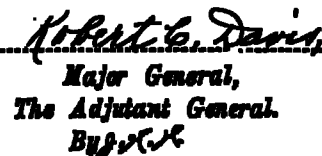 Robert C. Davis,
Major General,
The Adjutant General.
By